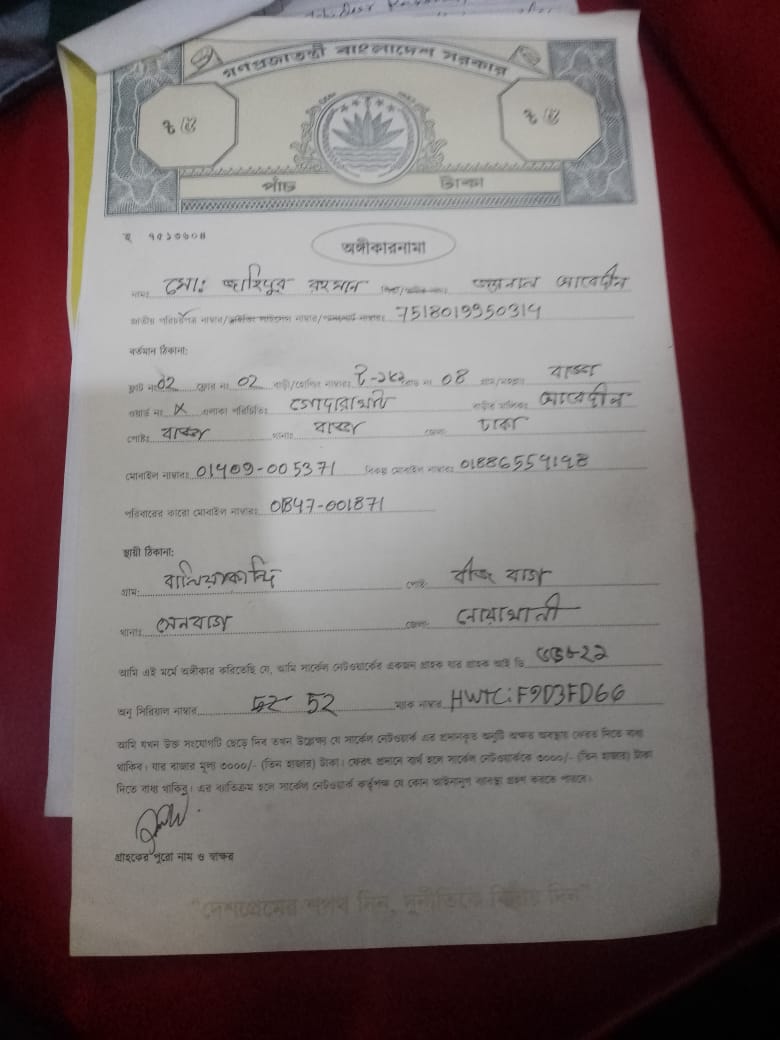 গণপ্রজাতন্ত্রী বাংলাদেশ সরকার
৳ ৫ ৳ ৫
পাঁচ টাকা
অঙ্গীকারনামা
নামঃ মোঃ রহমান আবেদীন
জাতীয় পরিচয়পত্র নাম্বার/ 7518019950314
বর্তমান ঠিকানা:
ফ্লাট নং 02 ফ্লোর নং 02 বাড়ী/হোল্ডিং নাম্বারঃ রোড নং 08 গ্রাম/মহল্লাঃ বাড্ডা
ওয়ার্ড নং X এলাকা পরিচিতিঃ বাড়ীর মালিকঃ আবেদীন
পোষ্টঃ বাড্ডা থানাঃ বাড্ডা জেলাঃ ঢাকা
মোবাইল নাম্বারঃ 01409-005371 বিকল্প মোবাইল নাম্বারঃ 01886559198
পরিবারের কারো মোবাইল নাম্বারঃ 01847-001871
স্থায়ী ঠিকানা:
গ্রাম: বালিয়াকান্দি পোষ্ট: বীজ বাগ
থানাঃ সেনবাগ জেলাঃ নোয়াখালী
আমি এই মর্মে অঙ্গীকার করিতেছি যে, আমি সার্কেল নেটওয়ার্কের একজন গ্রাহক যার গ্রাহক আই ডি
অনু সিরিয়াল নাম্বার 52 ম্যাক নাম্বার HWTC:F9D3FD66
আমি যখন উক্ত সংযোগটি ছেড়ে দিব তখন উল্লেক্ষ্য যে সার্কেল নেটওয়ার্ক এর প্রদানকৃত অনুটি অক্ষত অবস্থায় ফেরত দিতে বাধ্য
থাকিব। যার বাজার মূল্য ৩০০০/- (তিন হাজার) টাকা। ফেরৎ প্রদানে ব্যর্থ হলে সার্কেল নেটওয়ার্ককে ৩০০০/- (তিন হাজার) টাকা
দিতে বাধ্য থাকিব। এর ব্যতিক্রম হলে সার্কেল নেটওয়ার্ক কর্তৃপক্ষ যে কোন আইনানুগ ব্যবস্থা গ্রহণ করতে পারবে।
গ্রাহকের পুরো নাম ও স্বাক্ষর
"দেশপ্রেমের শপথ নিন, দুর্নীতিকে বিদায় দিন"